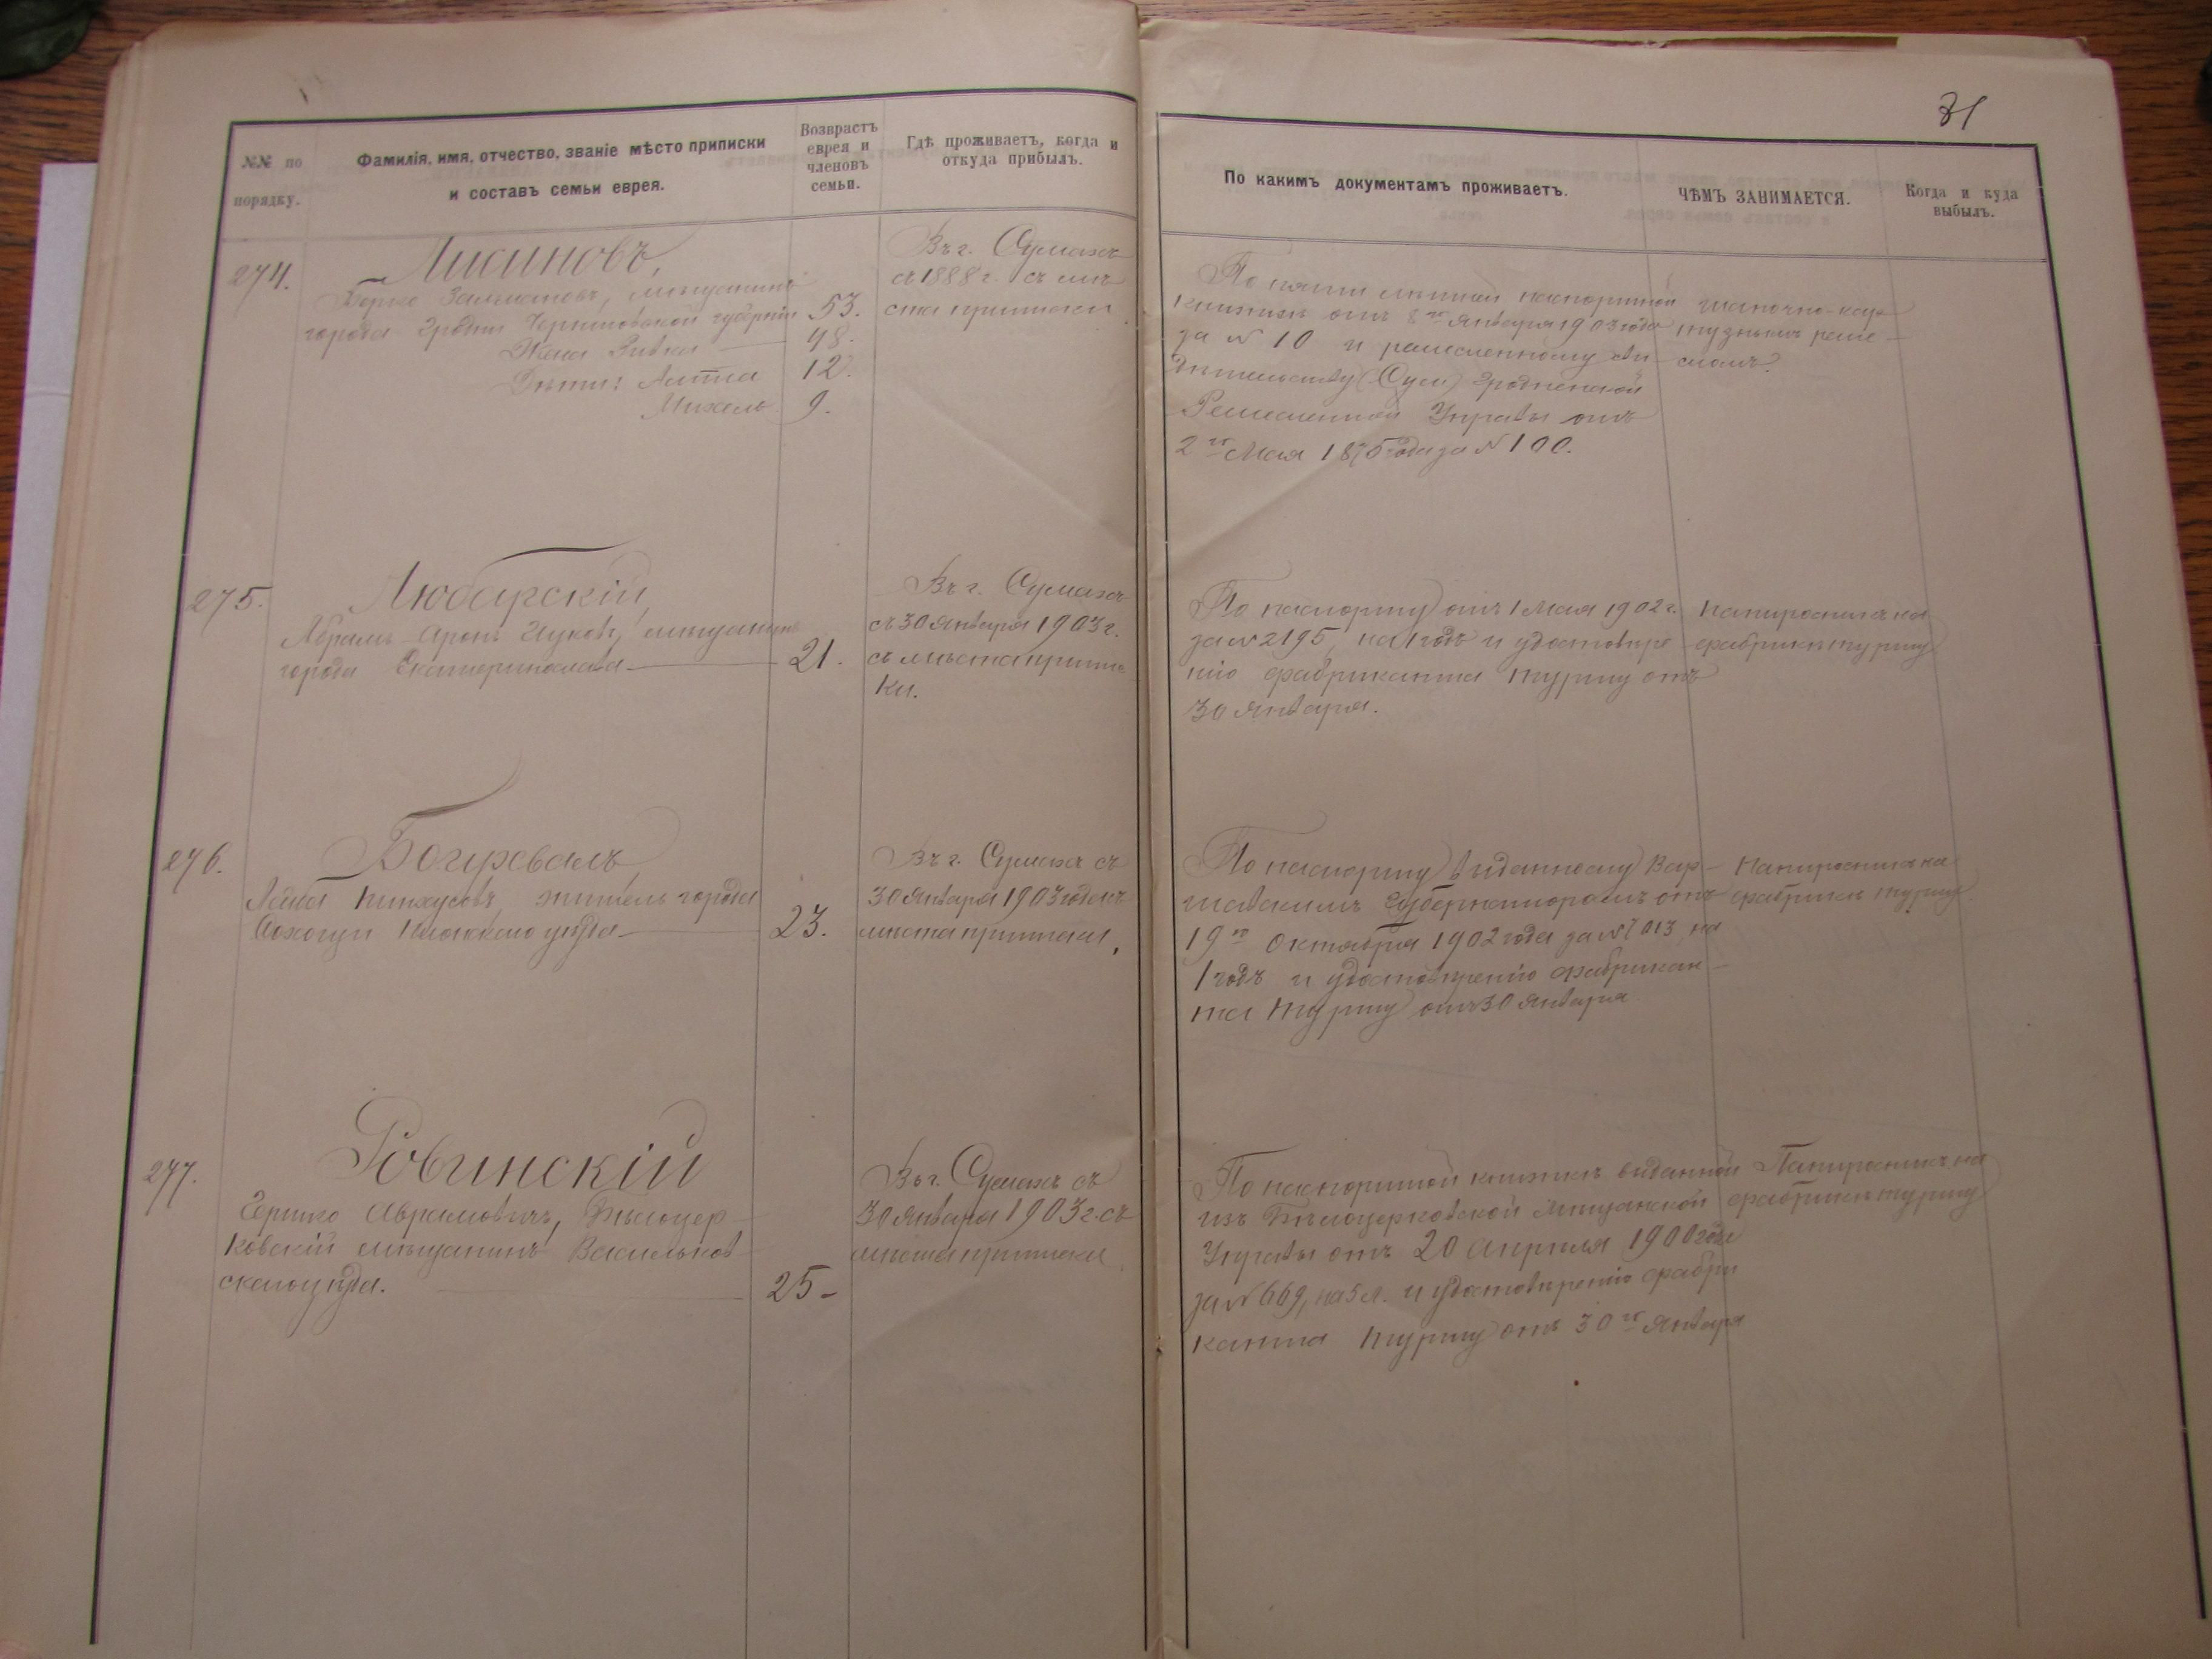 31
№№ по
порядку.
Фамилія, имя, отчество, званіе мѣсто приписки
и составъ семьи еврея.
Возврастъ
еврея и
членовъ
семьи.
Гдѣ проживаетъ, когда и
откуда прибылъ.
По какимъ документамъ проживаетъ.
ЧѢМЪ ЗАНИМАЕТСЯ.
Когда и куда
выбылъ.
274.
Лисиновъ,
Борко Залмановъ, мѣщанинъ
города Черниговской губерніи 53.
Жена Ривка 48.
Дѣти: 12.
Михель 9.
Въ г. Сумахъ
съ 1888 г. съ мѣ-
ста приписки.
По пяти лѣтней паспортной
книжкѣ отъ 8го Января 1903 года
за № 10 и ремесленному сви-
дѣтельству
Ремесленной Управы отъ
2го Мая 1875 года за № 100.
шапочно-кар-
тузнымъ реме-
сломъ.
275.
Любарскій,
Абрамъ-Аронъ мѣщанинъ
города Екатеринослава 21.
Въ г. Сумахъ
съ 30 Января 1903 г.
съ мѣста припис-
ки.
По паспорту отъ 1 Мая 1902 г.
за № 2195, на 1 годъ и удостовѣре-
нію фабриканта Турпу отъ
30 Января.
Папиросникъ на
фабрикѣ Турпу
276.
Лейба Пинхусовъ, житель города
уѣзда 23.
Въ г. Сумахъ съ
30 Января 1903 года съ
мѣста приписки.
По паспорту выданному Вар-
шавскимъ Губернаторомъ отъ
19го Октября 1902 года за № 7013 на
1 годъ и удостовѣренію фабрикан-
та Турпу отъ 30 Января
Папиросникъ на
фабрикѣ Турпу
277.
Ровинскій
Гершко Абрамовичъ, Бѣлоцер-
ковскій мѣщанинъ Васильков-
скаго уѣзда. 25-
Въ г. Сумахъ съ
30 Января 1903 г. съ
мѣста приписки
По паспортной книжкѣ выданной
изъ Бѣлоцерковской Мѣщанской
Управы отъ 20 Апрѣля 1900 года
за № 669, на 5 л. и удостовѣренію фабри
канта Турпу отъ 30го Января
Папиросникъ на
фабрикѣ Турпу